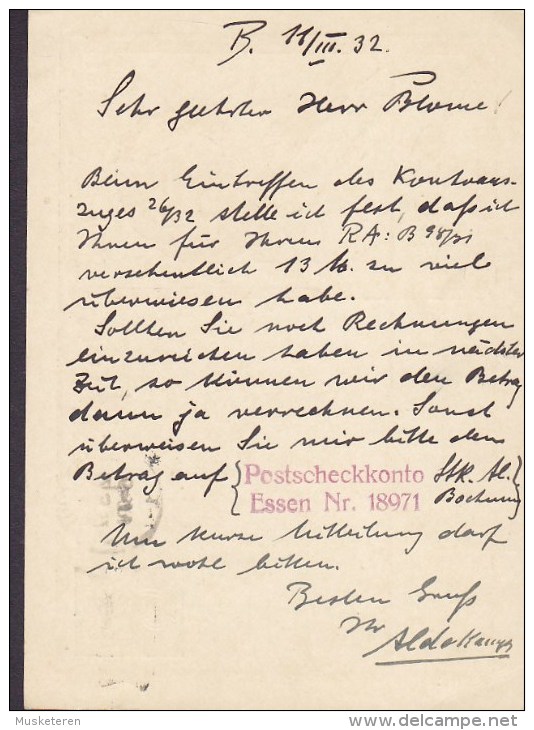 B. 11/III. 32.
Sehr geehrter Herr Blome!
Beim Eintreffen des Kontoaus-
zuges 26/32 stelle ich fest, daß ich
Ihnen für Ihren RA: B 98/31
versehentlich 13 M. zu viel
überwiesen habe.
Sollten Sie noch Rechnungen
einzureichen haben in nächster
Zeit, so können wir den Betrag
dann ja verrechnen. Sonst
überweisen Sie mir bitte den
Betrag auf { Postscheckkonto
Essen Nr. 18971 } Bochum
Um kurze Mitteilung darf
ich wohl bitten.
Besten Gruß
Ihr
Musketeren
delcampe.net